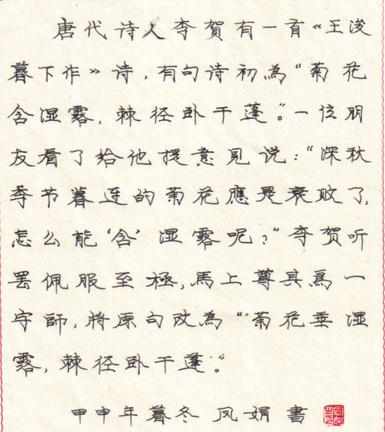 唐代诗人李贺有一首《王浚
暮下作》诗，有句诗初為“菊花
含湿露，棘径卧干蓬。”一位朋
友看了给他提意见说：“深秋
季节暮连的菊花應是衰败了，
怎么能‘含’湿露呢？”李贺听
罢佩服至極，馬上尊其爲一
字師，將原句改為“菊花垂湿
露，棘径卧干蓬。”
甲申年暮冬 凤娟書